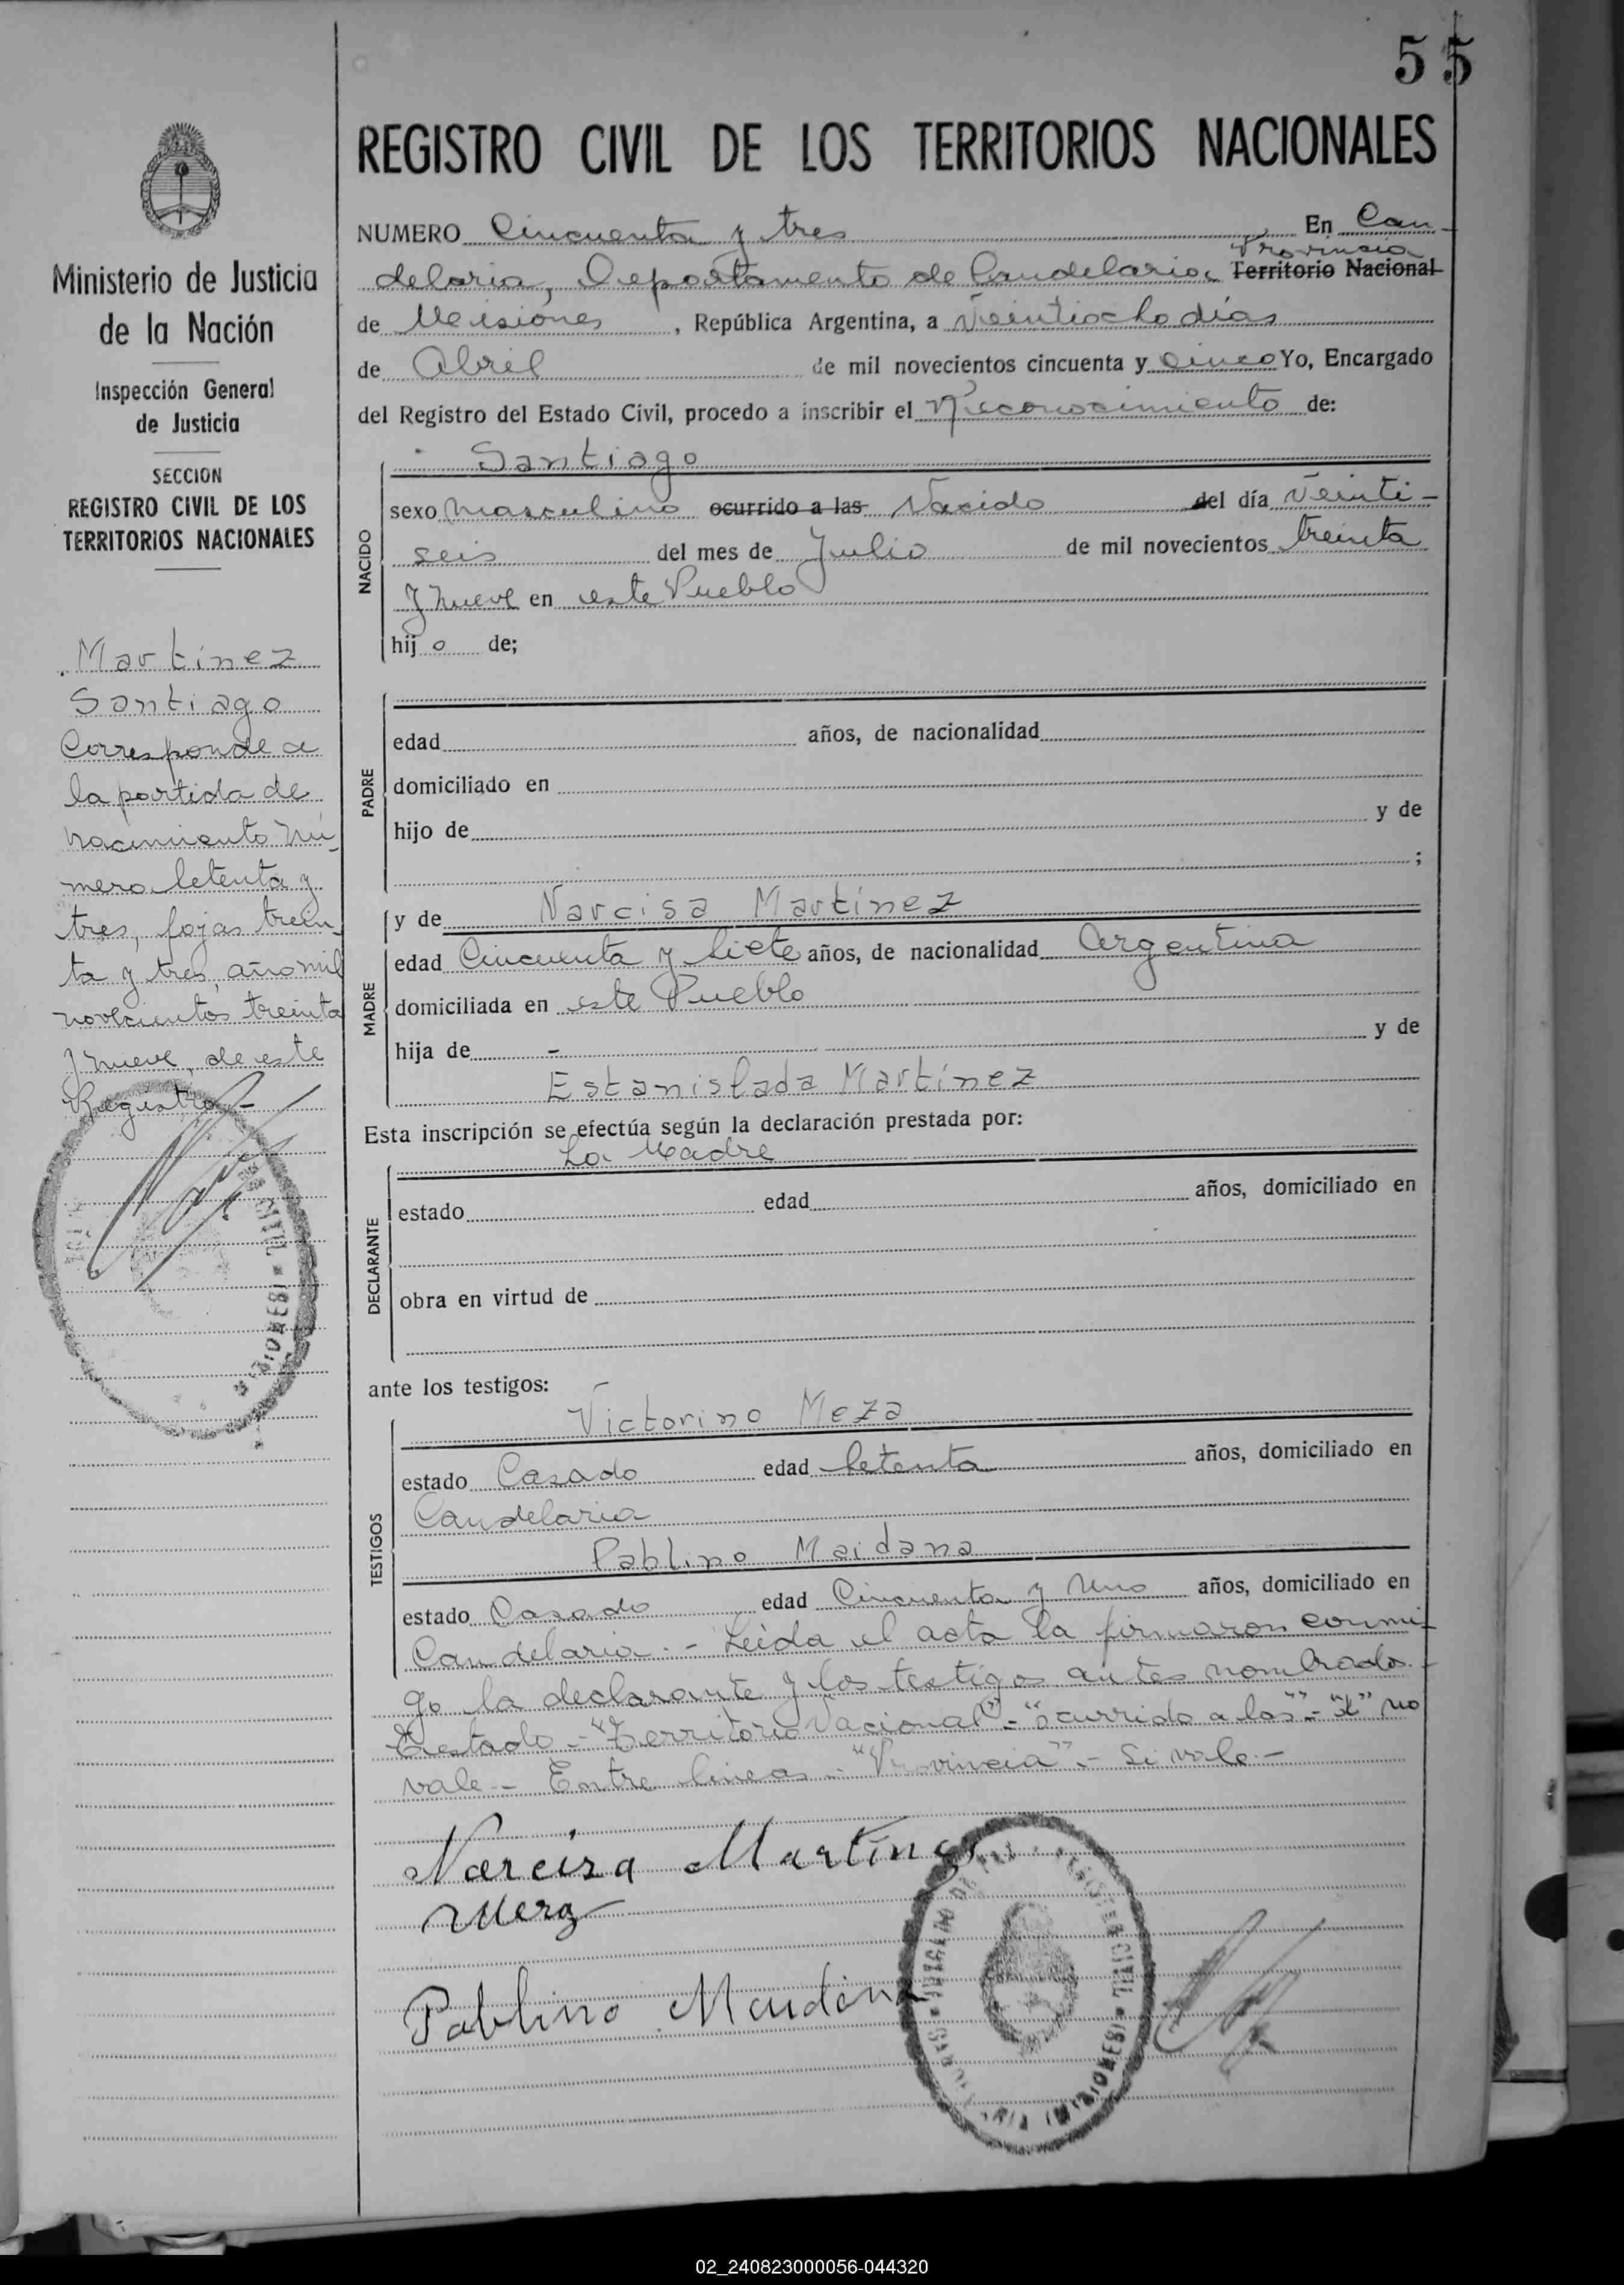 55
REGISTRO CIVIL DE LOS TERRITORIOS NACIONALES
NUMERO Cincuenta y tres En Can-
Provincia
delaria, Departamento de Candelaria, Territorio Nacional
de Misiones, República Argentina, a Veintiocho días
de Abril de mil novecientos cincuenta y cinco Yo, Encargado
del Registro del Estado Civil, procedo a inscribir el Reconocimiento de:
Santiago
NACIDO
sexo masculino ocurrido a las Nacido del día veinti-
seis del mes de Julio de mil novecientos treinta
y nueve en este Pueblo
hij o de;
PADRE
edad años, de nacionalidad
domiciliado en
hijo de y de
;
MADRE
y de Narcisa Martínez
edad Cincuenta y siete años, de nacionalidad Argentina
domiciliada en este Pueblo
hija de - y de
Estanislada Martínez
Esta inscripción se efectúa según la declaración prestada por:
La Madre
DECLARANTE
estado edad años, domiciliado en
obra en virtud de
ante los testigos:
TESTIGOS
Victorino Meza
estado Casado edad setenta años, domiciliado en
Candelaria
Pablino Maidana
estado Casado edad Cincuenta y Uno años, domiciliado en
Candelaria.- Leída el acta la firmaron conmi-
go la declarante y los testigos antes nombrados.-
Testado - "Territorio Nacional" - "ocurrido a las" - no
vale - Entre líneas - "Provincia" - Si vale.-
Narcisa Martines
Meza
Pablino Maidana
Ministerio de Justicia
de la Nación
Inspección General
de Justicia
SECCION
REGISTRO CIVIL DE LOS
TERRITORIOS NACIONALES
Martínez
Santiago
Corresponde a
la partida de
nacimiento nú-
mero setenta y
tres, fojas trein-
ta y tres, año mil
novecientos treinta
y nueve, de este
Registro.-
02_240823000056-044320